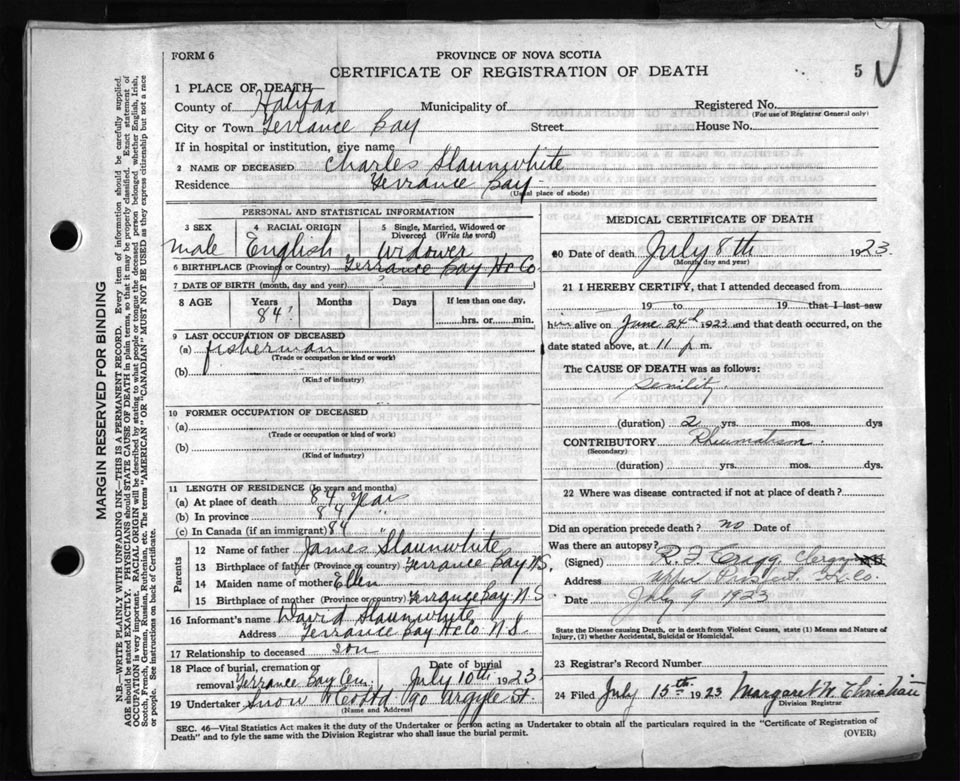 FORM 6
PROVINCE OF NOVA SCOTIA
CERTIFICATE OF REGISTRATION OF DEATH
5
1 PLACE OF DEATH
County of Halifax Municipality of Registered No.
(For use of Registrar General only)
City or Town Terrance Bay Street House No.
If in hospital or institution, give name
2 NAME OF DECEASED Charles Slaunwhite
Residence Terrance Bay
(Usual place of abode)
PERSONAL AND STATISTICAL INFORMATION
3 SEX 4 RACIAL ORIGIN 5 Single, Married, Widowed or Divorced (Write the word)
male English Widower
6 BIRTHPLACE (Province or Country) Terrance Bay Hx Co.
7 DATE OF BIRTH (month, day and year)
8 AGE Years Months Days If less than one day,
84? hrs. or min.
9 LAST OCCUPATION OF DECEASED
(a) fisherman
(Trade or occupation or kind of work)
(b)
(Kind of industry)
10 FORMER OCCUPATION OF DECEASED
(a)
(Trade or occupation or kind of work)
(b)
(Kind of industry)
11 LENGTH OF RESIDENCE (In years and months)
(a) At place of death 84 Years
(b) In province 84 "
(c) In Canada (if an immigrant) 84
Parents
12 Name of father James Slaunwhite
13 Birthplace of father (Province or country) Terrance Bay N.S.
14 Maiden name of mother Ellen
15 Birthplace of mother (Province or country) Terrance Bay N S
16 Informant's name David Slaunwhite
Address Terrance Bay Hx Co N.S.
17 Relationship to deceased son
18 Place of burial, cremation or removal Terrance Bay Cem. Date of burial July 10th 1923
19 Undertaker Snow & Co Ltd 90 Argyle St.
(Name and Address)
MEDICAL CERTIFICATE OF DEATH
20 Date of death July 8th 1923.
(Month, day and year)
21 I HEREBY CERTIFY, that I attended deceased from
19 to 19 that I last saw
him alive on June 24th 1923 and that death occurred, on the
date stated above, at 11 p m.
The CAUSE OF DEATH was as follows:
Senility
(duration) 2 yrs. mos. dys
CONTRIBUTORY Rheumatism.
(Secondary)
(duration) yrs. mos. dys.
22 Where was disease contracted if not at place of death?
Did an operation precede death? no Date of
Was there an autopsy?
(Signed) R. F. Cragg Clergy M.D.
Address Upper Prospect. Hx Co.
Date July 9 1923
State the Disease causing Death, or in death from Violent Causes, state (1) Means and Nature of
Injury, (2) whether Accidental, Suicidal or Homicidal.
23 Registrar's Record Number
24 Filed July 15th 1923 Margaret W. Christian
Division Registrar
SEC. 46—Vital Statistics Act makes it the duty of the Undertaker or person acting as Undertaker to obtain all the particulars required in the "Certificate of Registration of
Death" and to fyle the same with the Division Registrar who shall issue the burial permit. (OVER)
MARGIN RESERVED FOR BINDING
N.B.—WRITE PLAINLY WITH UNFADING INK—THIS IS A PERMANENT RECORD. Every item of information should be carefully supplied.
AGE should be stated EXACTLY. PHYSICIANS should STATE CAUSE OF DEATH in plain terms, so that it may be properly classified. Exact statement of
OCCUPATION is very important. RACIAL ORIGIN will be described by stating to what people or tongue the deceased person belonged whether English, Irish,
Scotch, French, German, Russian, Ruthenian, etc. The terms "AMERICAN" OR "CANADIAN" MUST NOT BE USED as they express citizenship but not a race
or people. See instructions on back of Certificate.